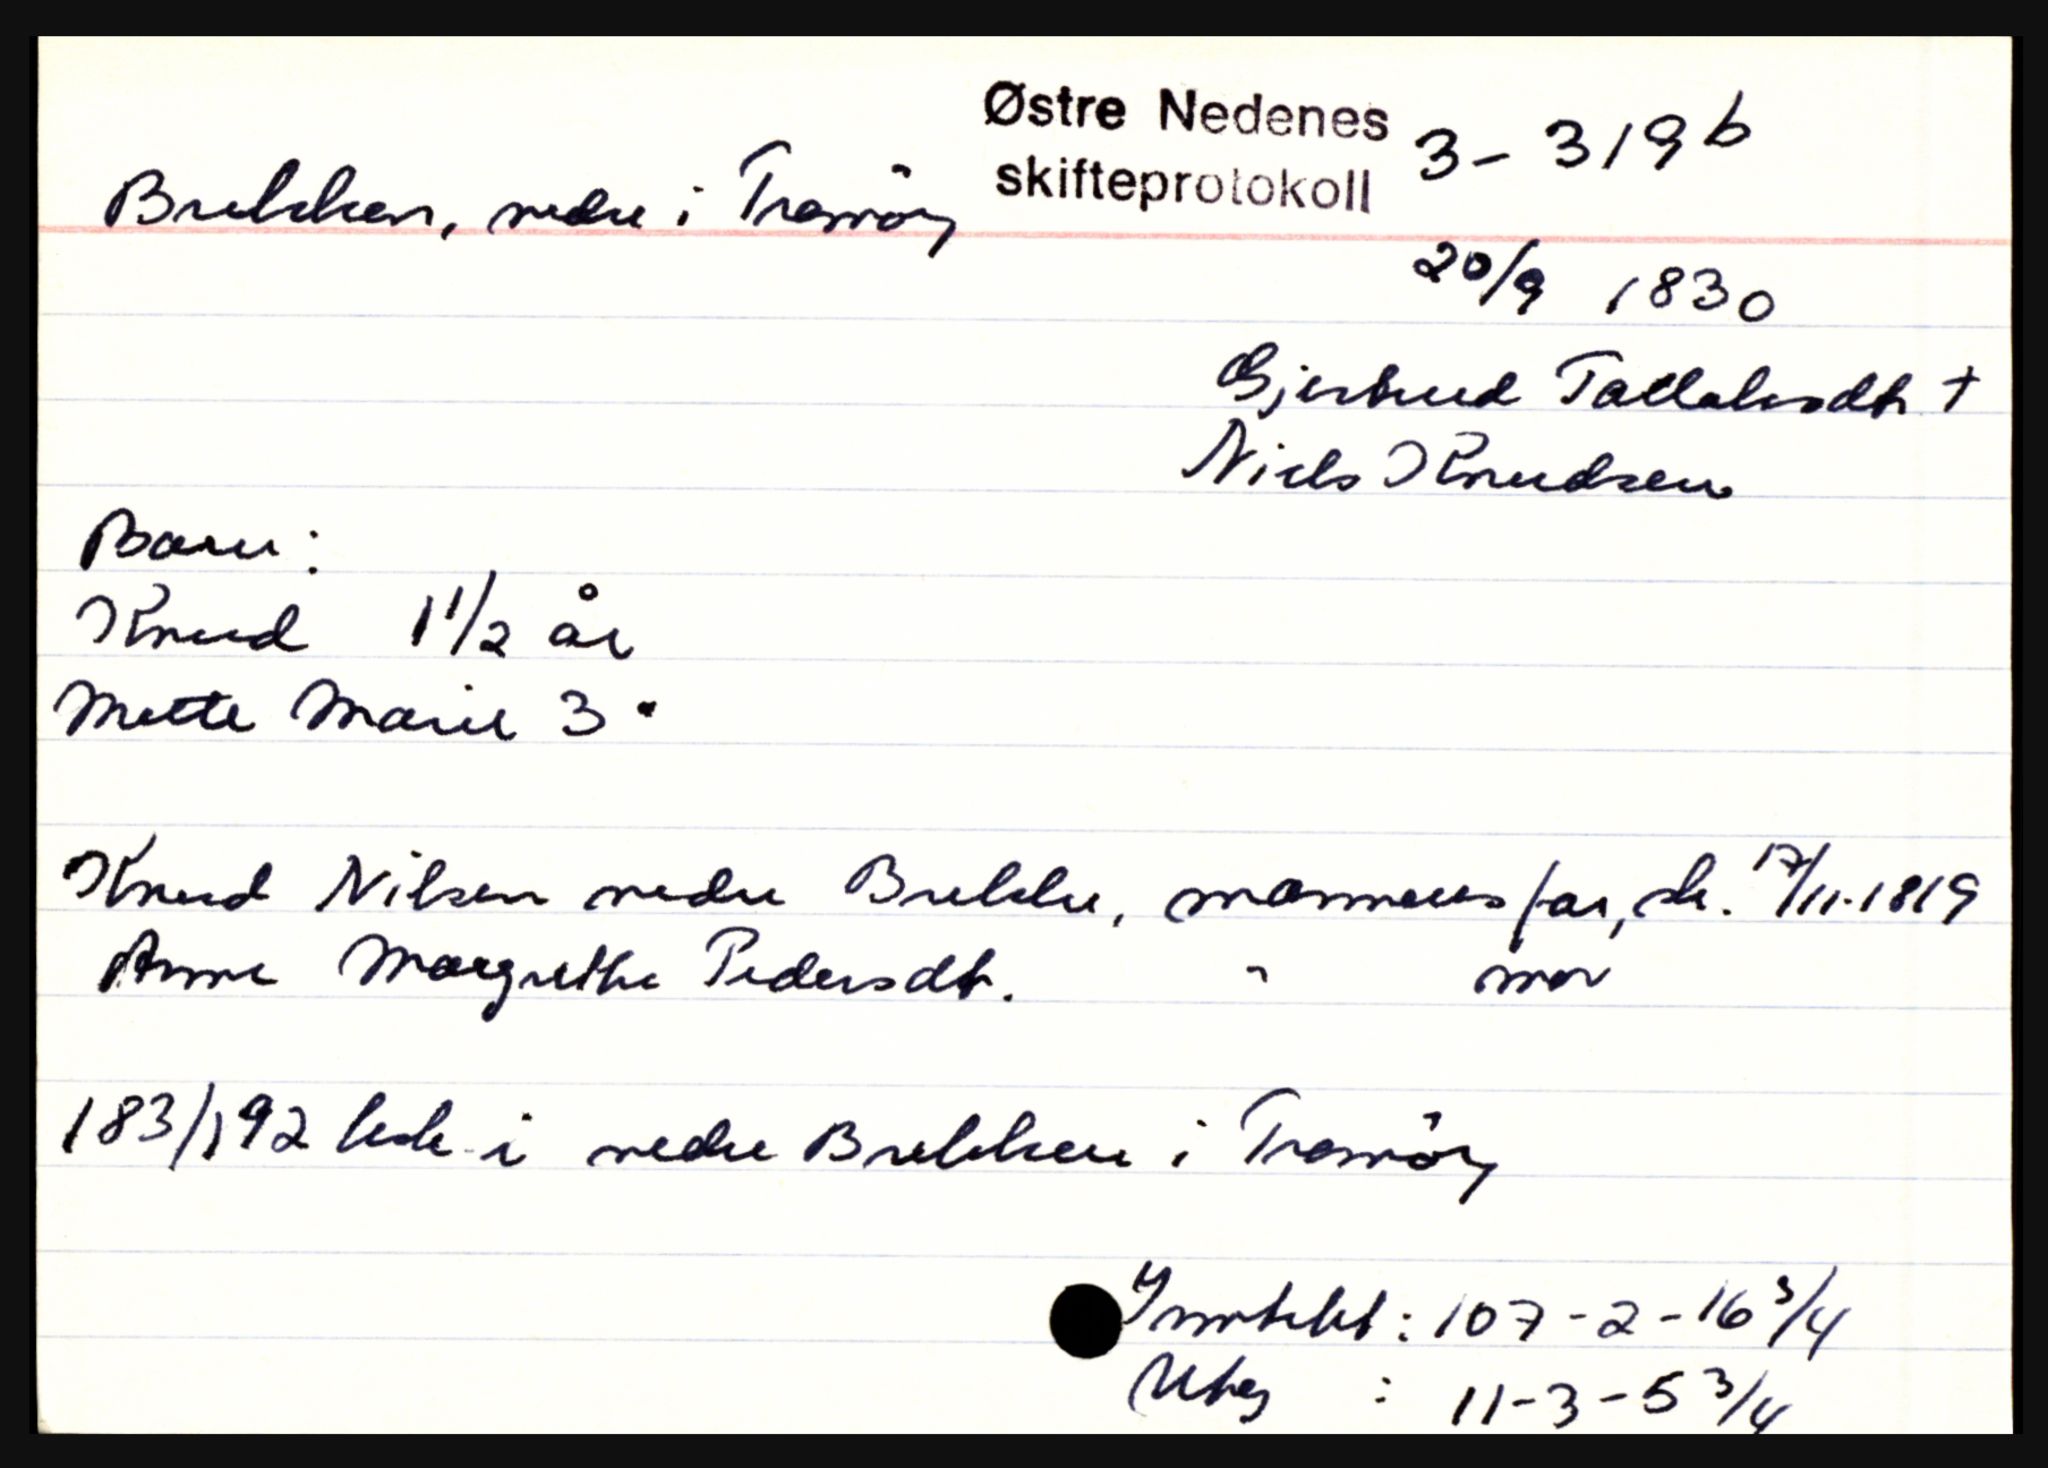 Østre Nedenes 3-319b
Brekken, nedre i Tromöy skifteprotokoll
20/9 1830
Gjertrud Tallaksdtr. +
Niels Knudsen
Barn:
Knud 1 1/2 år
Mette Marie 3 "
Knud Nilsen nedre Brekke, mannens far, sk. 17/11-1819
Anne Margrethe Pedersdtr. " mor
183/192 lisk. i nedre Brekken i Tromöy
Inntekt : 107-2-16 3/4
Utg : 11-3-5 3/4